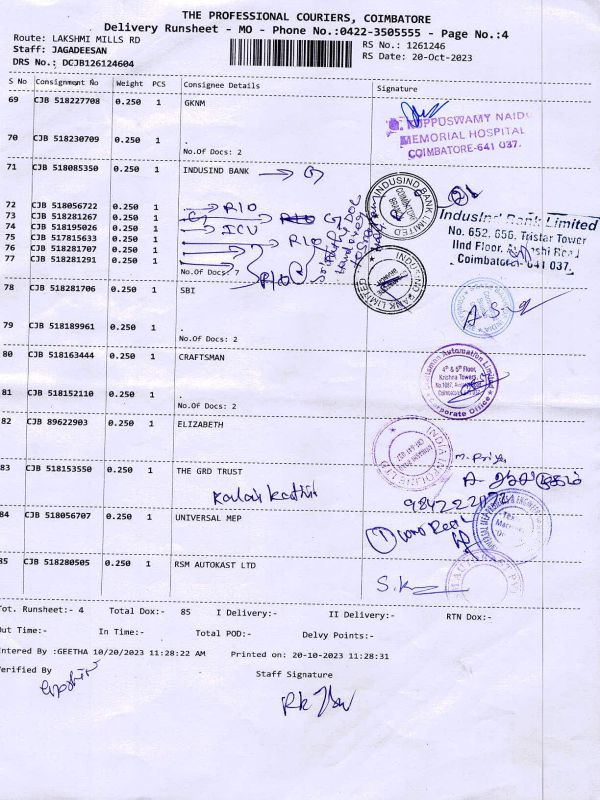 THE PROFESSIONAL COURIERS, COIMBATORE
Delivery Runsheet - MO - Phone No.:0422-3505555 - Page No.:4
Route: LAKSHMI MILLS RD
RS No.: 1261246
Staff: JAGADEESAN
RS Date: 20-Oct-2023
DRS No.: DCJB126124604
S No Consignment No Weight PCS Consignee Details Signature
69 CJB 518227708 0.250 1 GKNM
KUPPUSWAMY NAIDU
MEMORIAL HOSPITAL
COIMBATORE-641 037.
70 CJB 518230709 0.250 1 .
No.Of Docs: 2
71 CJB 518085350 0.250 1 INDUSIND BANK
INDUSIND BANK LIMITED
IndusInd Bank Limited
No. 652, 656, Tristar Tower
IInd Floor,
Coimbatore- 641 037.
72 CJB 518056722 0.250 1 R10
73 CJB 518281267 0.250 1
74 CJB 518195026 0.250 1 ICU
75 CJB 517815633 0.250 1 R10
76 CJB 518281707 0.250 1
77 CJB 518281291 0.250 1
No.Of Docs: 7
R10
INDUSIND BANK LIMITED
78 CJB 518281706 0.250 1 SBI
79 CJB 518189961 0.250 1 .
No.Of Docs: 2
80 CJB 518163444 0.250 1 CRAFTSMAN
Craftsman Automation Limited
4th & 5th Floor,
Krishna Towers,
Corporate Office
81 CJB 518152110 0.250 1 .
No.Of Docs: 2
82 CJB 89622903 0.250 1 ELIZABETH
M. Priya
83 CJB 518153550 0.250 1 THE GRD TRUST
84 CJB 518056707 0.250 1 UNIVERSAL MEP
85 CJB 518280505 0.250 1 RSM AUTOKAST LTD
S.K
Tot. Runsheet:- 4 Total Dox:- 85 I Delivery:- II Delivery:- RTN Dox:-
Out Time:- In Time:- Total POD:- Delvy Points:-
Entered By :GEETHA 10/20/2023 11:28:22 AM Printed on: 20-10-2023 11:28:31
Verified By
Staff Signature